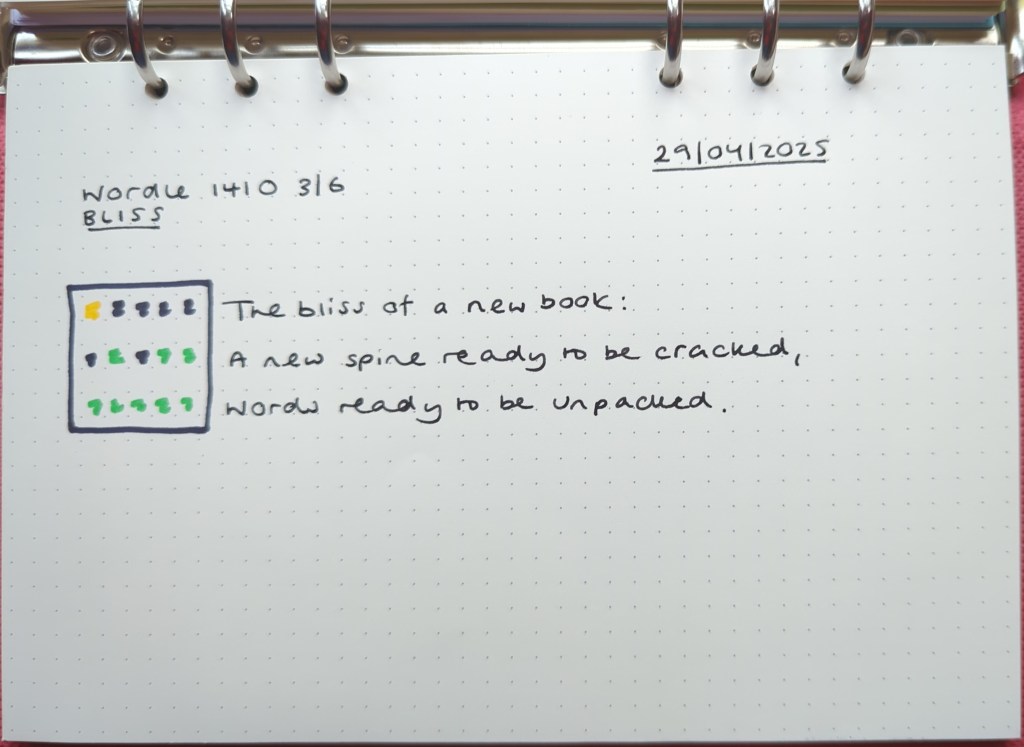 29/04/2025
Wordle 1410 3/6
BLISS
The bliss of a new book:
A new spine ready to be cracked,
words ready to be unpacked.